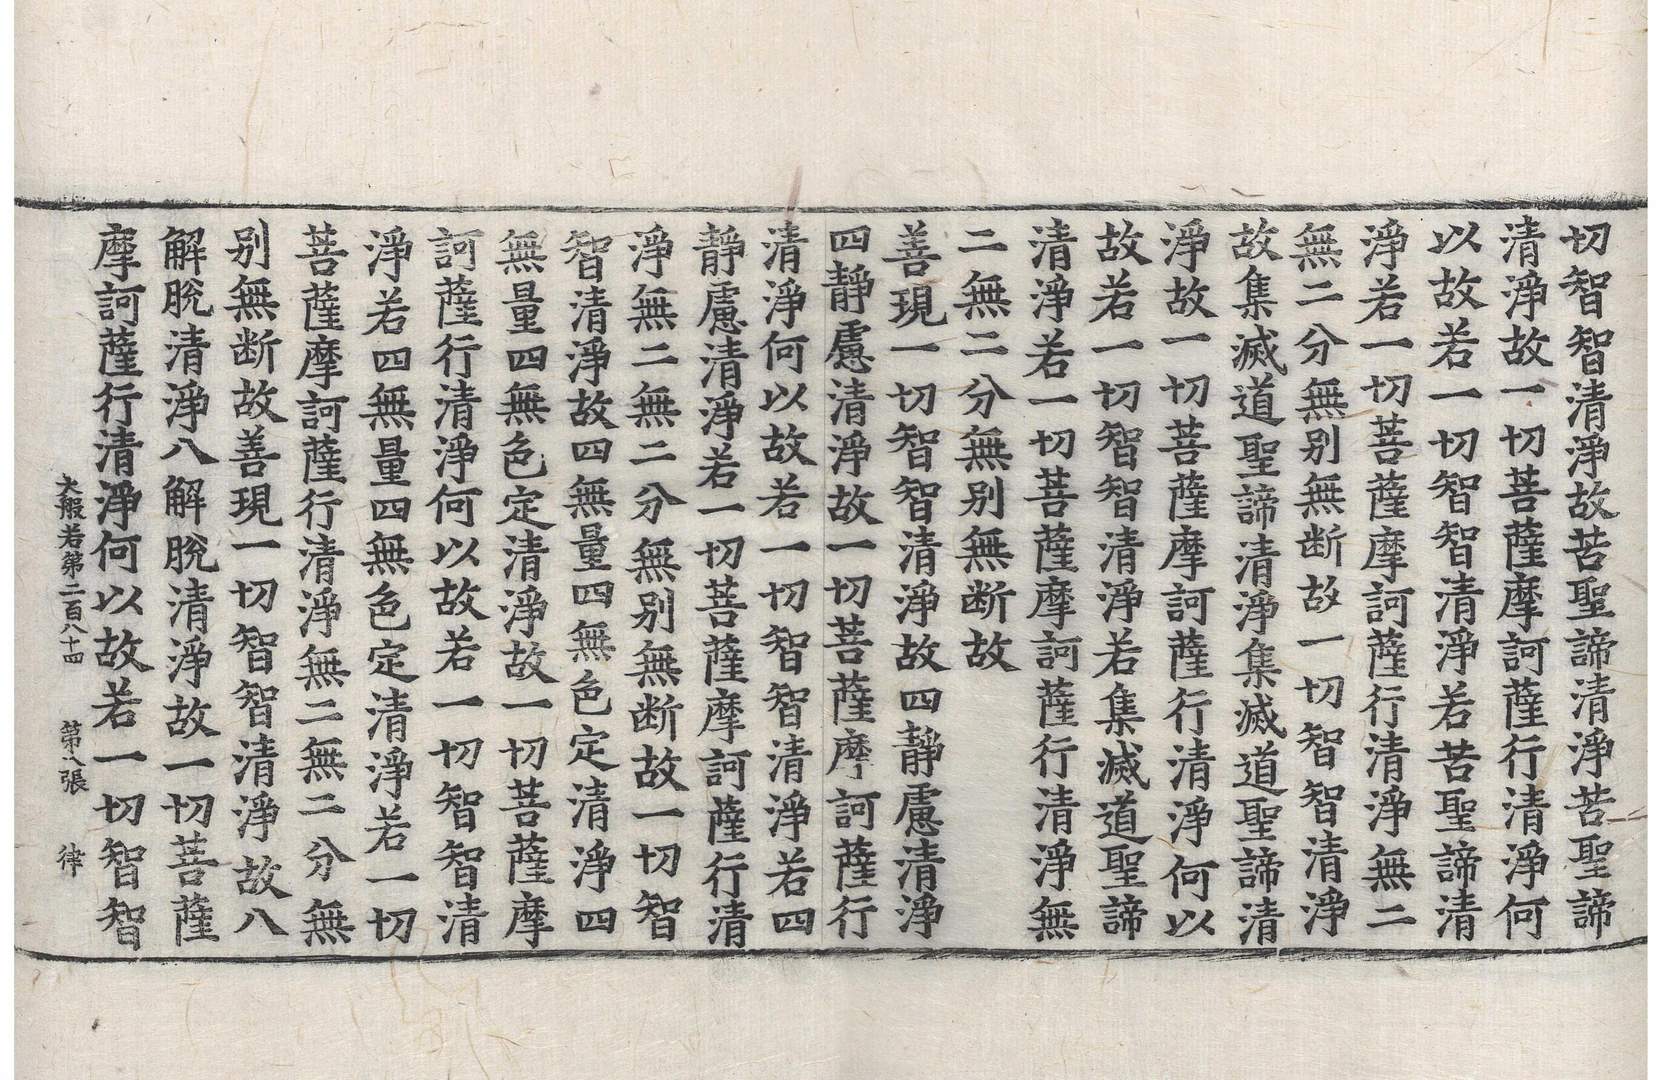 切智智清淨故苦聖諦清淨苦聖諦
清淨故一切菩薩摩訶薩行清淨何
以故若一切智智清淨若苦聖諦清
淨若一切菩薩摩訶薩行清淨無二
無二分無别無断故一切智智清淨
故集滅道聖諦清淨集滅道聖諦清
淨故一切菩薩摩訶薩行清淨何以
故若一切智智清淨若集滅道聖諦
清淨若一切菩薩摩訶薩行清淨無
二無二分無别無断故
善現一切智智清淨故四靜慮清淨
四靜慮清淨故一切菩薩摩訶薩行
清淨何以故若一切智智清淨若四
靜慮清淨若一切菩薩摩訶薩行清
淨無二無二分無别無断故一切智
智清淨故四無量四無色定清淨四
無量四無色定清淨故一切菩薩摩
訶薩行清淨何以故若一切智智清
淨若四無量四無色定清淨若一切
菩薩摩訶薩行清淨無二無二分無
别無断故善現一切智智清淨故八
解脫清淨八解脫清淨故一切菩薩
摩訶薩行清淨何以故若一切智智
大般若第二百八十四 第八張 律